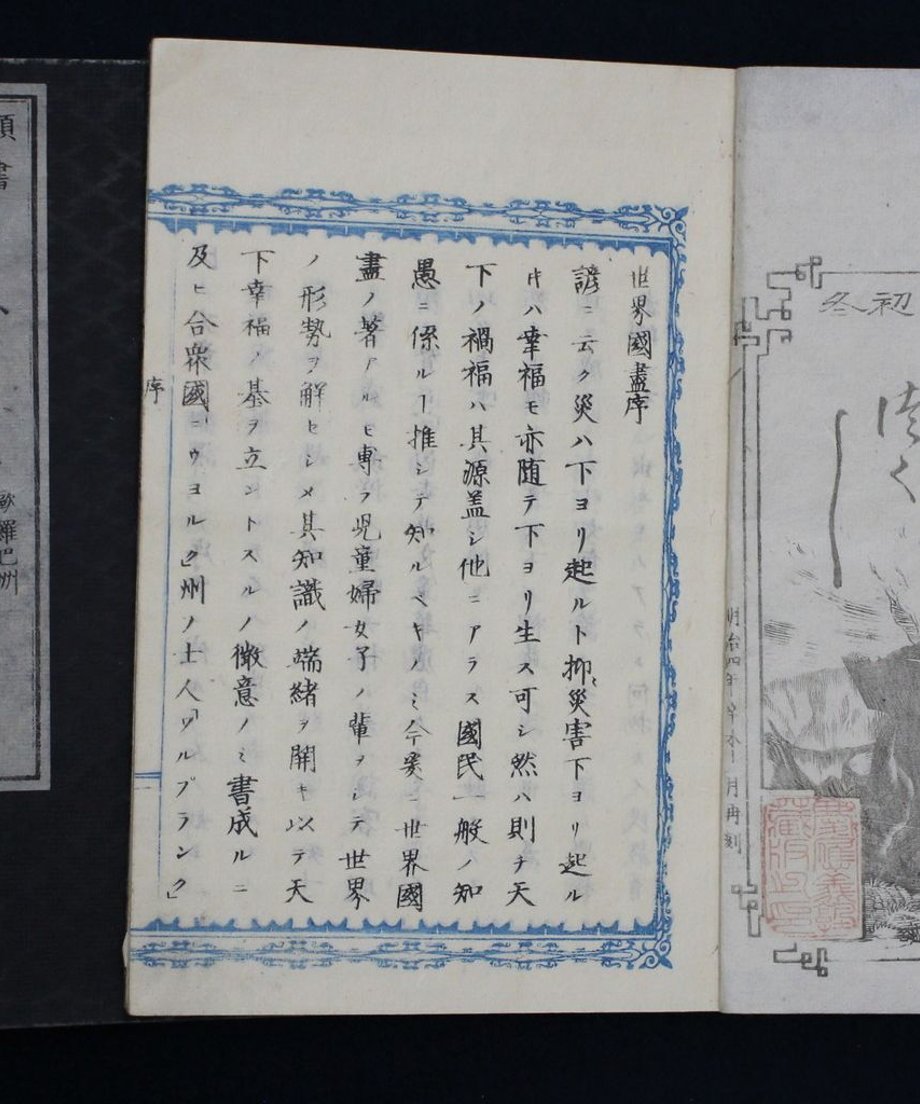 初冬
明治四年
月再刻
慶應義塾蔵版之印
世界國盡序
諺ニ云ク災ハ下ヨリ起ルト抑〻災害下ヨリ起ル
トキハ幸福モ亦随テ下ヨリ生ス可シ然ハ則チ天
下ノ禍福ハ其源盖シ他ニアラス國民一般ノ知
愚ニ係ルヿ推シテ知ルベキノミ今爰ニ世界國
盡ノ著アルモ専ラ児童婦女子ノ輩ヲシテ世界
ノ形勢ヲ解セシメ其知識ノ端緒ヲ開キ以テ天
下幸福ノ基ヲ立ントスルノ微意ノミ書成ルニ
及ヒ合衆國「ニウヨルク」州ノ士人「ウルブランク」
序
頭書
歐羅巴州